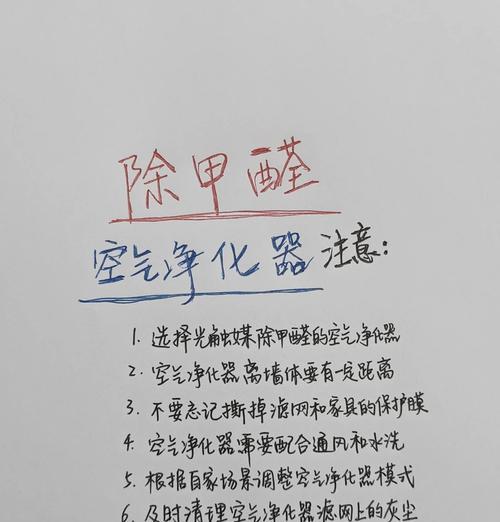 除甲醛
空气净化器注意:
1. 选择光触媒除甲醛的空气净化器
2. 空气净化器离墙体要有一定距离
3. 不要忘记撕掉滤网和家具的保护膜
4. 空气净化器需要配合通风和水洗
5. 根据自家场景调整空气净化器模式
6. 及时清理空气净化器滤网上的灰尘